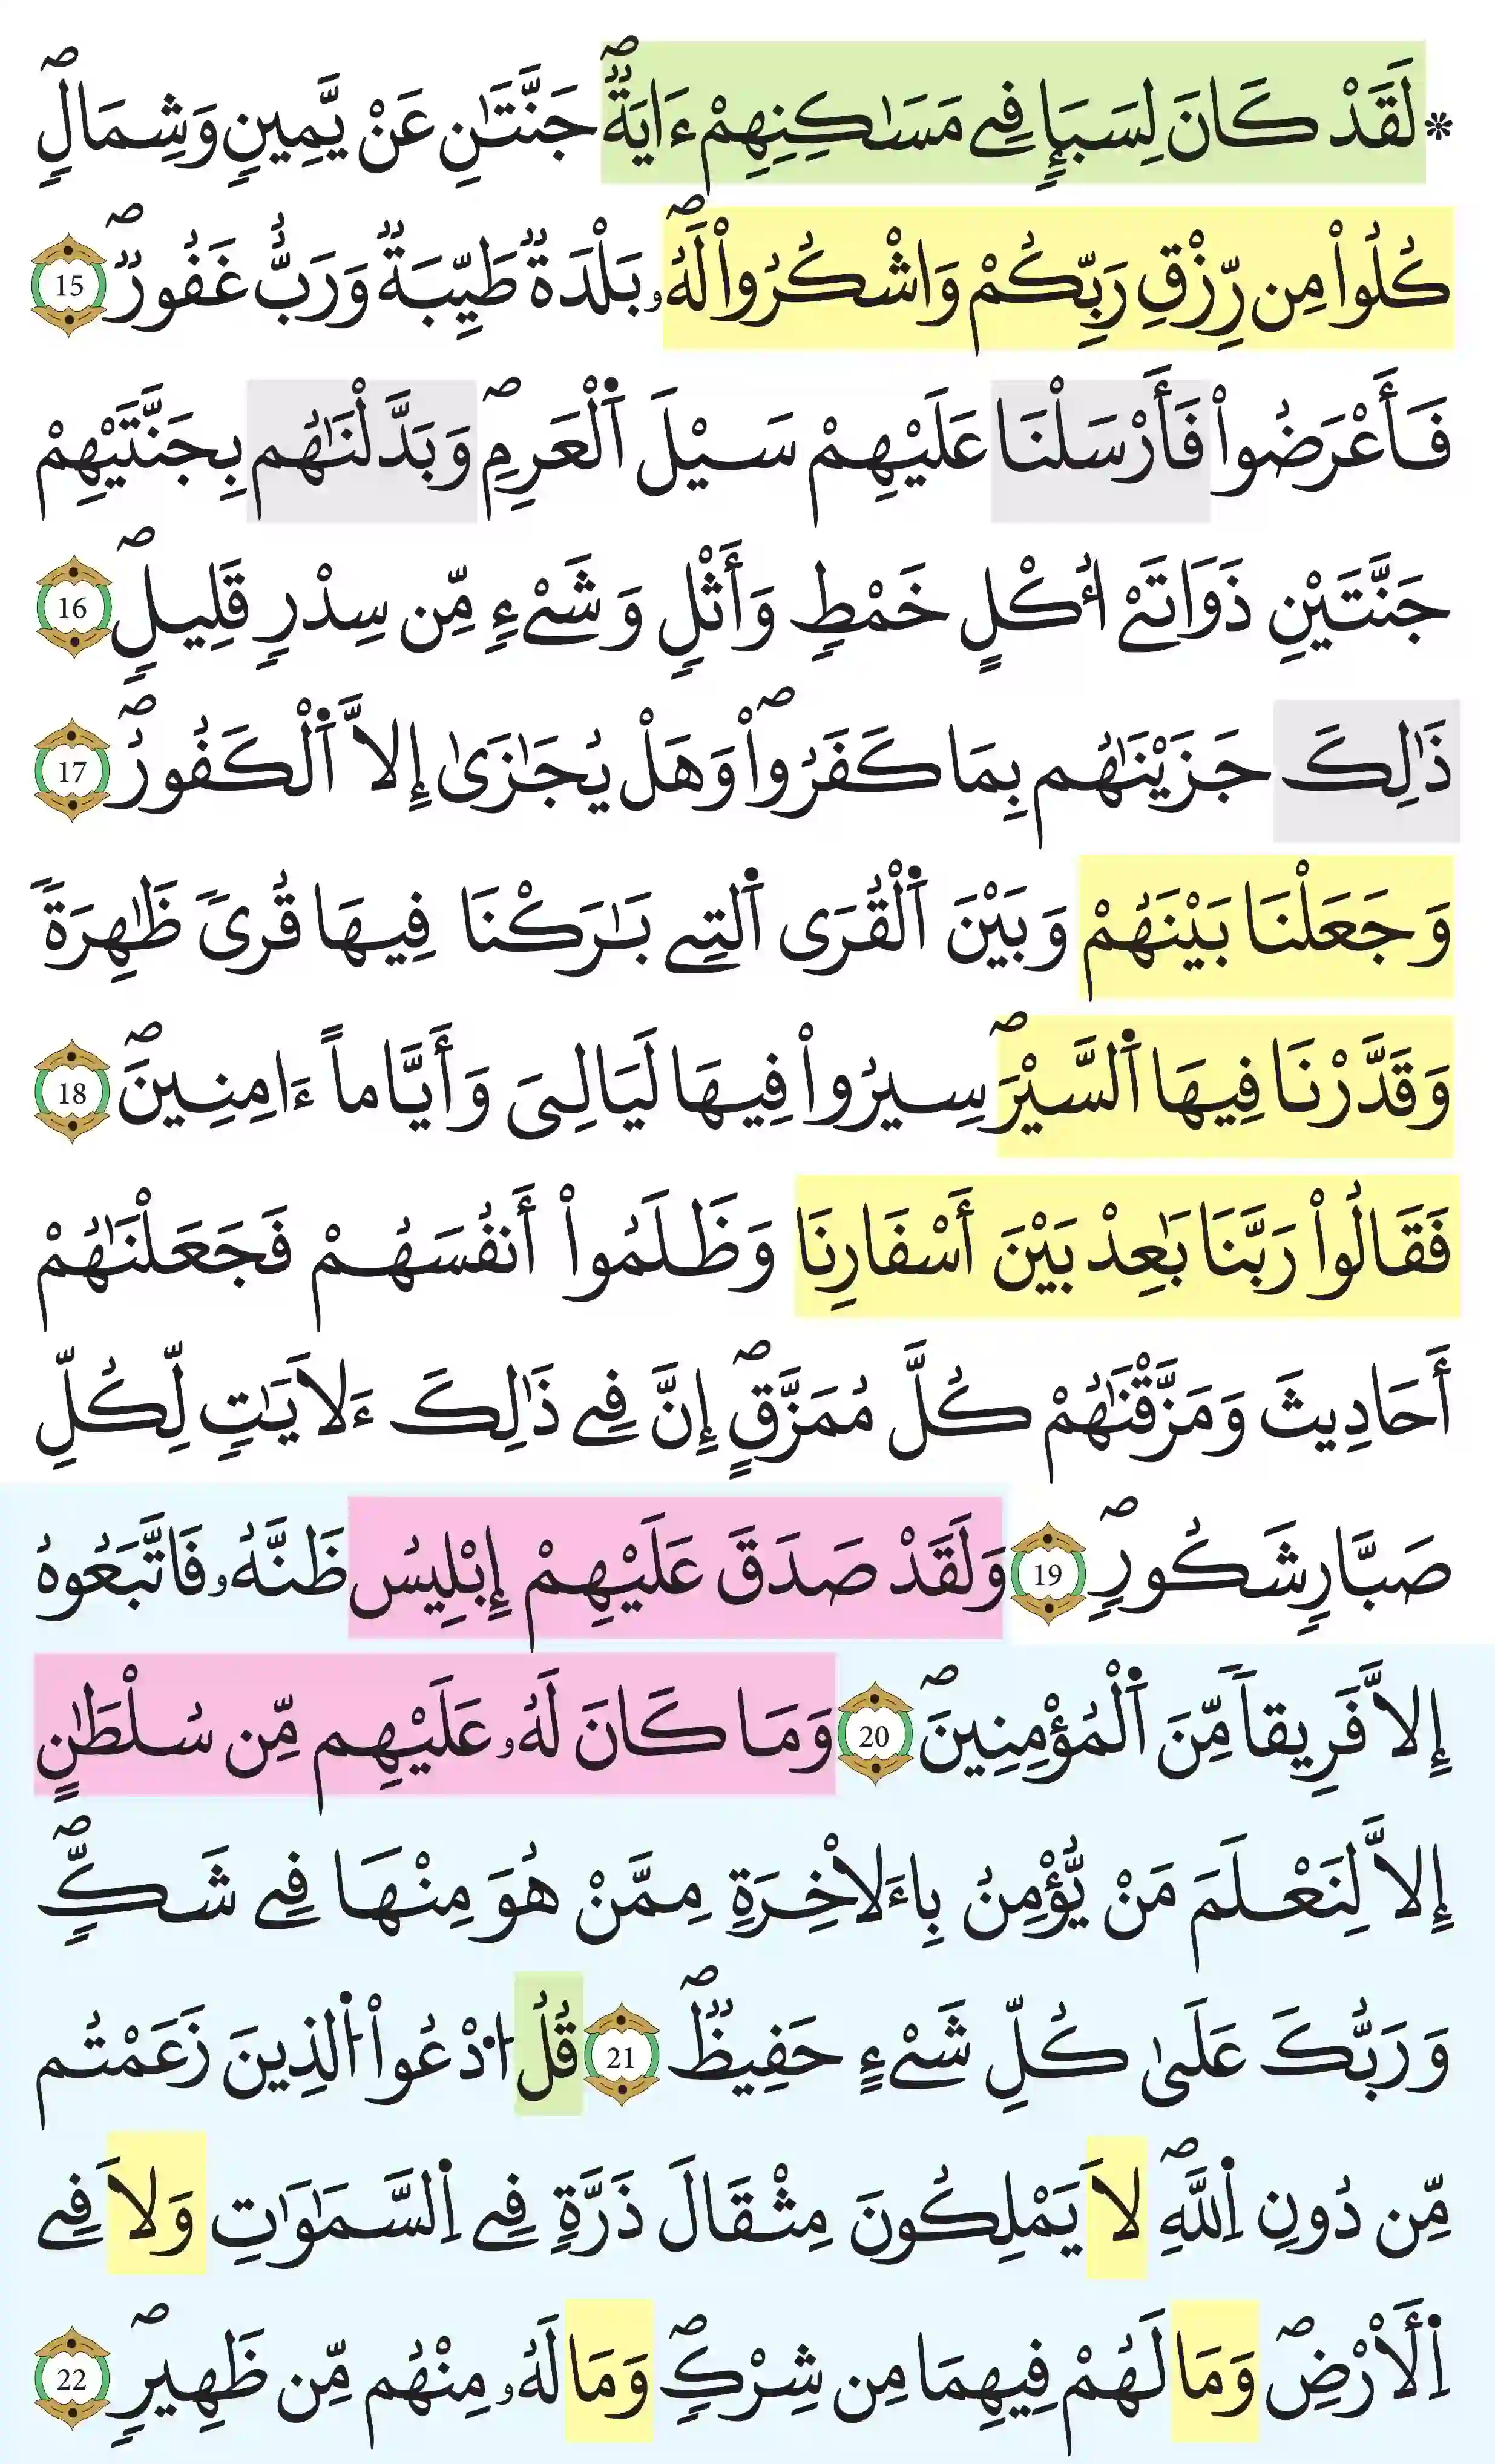 * لَقَدْ كَانَ لِسَبَإٖ فِے مَسَٰكِنِهِمْ ءَايَةٞۖ جَنَّتَٰنِ عَنْ يَّمِينٖ وَشِمَالٖۖ
كُلُواْ مِن رِّزْقِ رَبِّكُمْ وَاشْكُرُواْ لَهُۥۖ بَلْدَةٞ طَيِّبَةٞ وَرَبٌّ غَفُورٞۖ 15
فَأَعْرَضُواْ فَأَرْسَلْنَا عَلَيْهِمْ سَيْلَ اَ۬لْعَرِمِۖ وَبَدَّلْنَٰهُم بِجَنَّتَيْهِمْ
جَنَّتَيْنِ ذَوَاتَےْ أُكْلٍ خَمْطٖ وَأَثْلٖ وَشَےْءٖ مِّن سِدْرٖ قَلِيلٖۖ 16
ذَٰلِكَ جَزَيْنَٰهُم بِمَا كَفَرُواْۖ وَهَلْ يُجَٰزَىٰ إِلَّا اَ۬لْكَفُورُۖ 17
وَجَعَلْنَا بَيْنَهُمْ وَبَيْنَ اَ۬لْقُرَى اَ۬لتِے بَٰرَكْنَا فِيهَا قُرىٗ ظَٰهِرَةٗ
وَقَدَّرْنَا فِيهَا اَ۬لسَّيْرَۖ سِيرُواْ فِيهَا لَيَالِىَ وَأَيَّاماً ءَامِنِينَۖ 18
فَقَالُواْ رَبَّنَا بَٰعِدْ بَيْنَ أَسْفَارِنَا وَظَلَمُواْ أَنفُسَهُمْ فَجَعَلْنَٰهُمْ
أَحَادِيثَ وَمَزَّقْنَٰهُمْ كُلَّ مُمَزَّقٍۖ إِنَّ فِے ذَٰلِكَ ءَلَايَٰتٖ لِّكُلِّ
صَبَّارٖ شَكُورٖۖ 19 وَلَقَدْ صَدَقَ عَلَيْهِمْ إِبْلِيسُ ظَنَّهُۥ فَاتَّبَعُوهُ
إِلَّا فَرِيقاٗ مِّنَ اَ۬لْمُؤْمِنِينَۖ 20 وَمَا كَانَ لَهُۥ عَلَيْهِم مِّن سُلْطَٰنٍ
إِلَّا لِنَعْلَمَ مَنْ يُّؤْمِنُ بِاءَلَاخِرَةِ مِمَّنْ هُوَ مِنْهَا فِے شَكّٖۖ
وَرَبُّكَ عَلَىٰ كُلِّ شَےْءٍ حَفِيظٞۖ 21 قُلُ اُ۟دْعُواْ اُ۬لذِينَ زَعَمْتُم
مِّن دُونِ اِ۬للَّهِۖ لَا يَمْلِكُونَ مِثْقَالَ ذَرَّةٖ فِے اِ۬لسَّمَٰوَٰتِ وَلَا فِے
اِ۬لَارْضِۖ وَمَا لَهُمْ فِيهِمَا مِن شِرْكٖۖ وَمَا لَهُۥ مِنْهُم مِّن ظَهِيرٖۖ 22